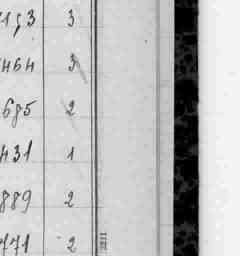 1153 3
464 3
685 2
431 1
889 2
771 2